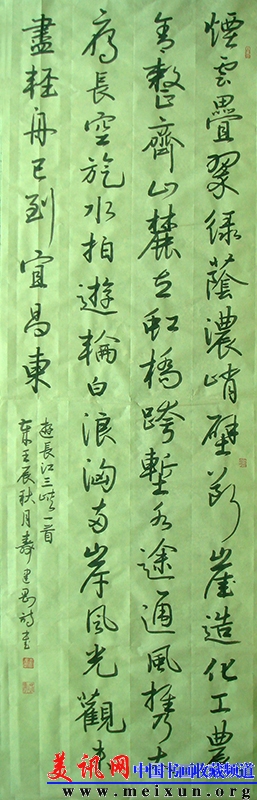 煙雲疊翠綠蔭濃峭壁崖造化工農
舍整齊山麓立虹橋跨塹水途通風攜大
雁長空旋水拍遊輪白浪洶兩岸風光觀未
盡輕舟已到宜昌東
遊長江三峽一首
壬辰秋月壽
美讯网中国书画收藏频道
www.meixun.org